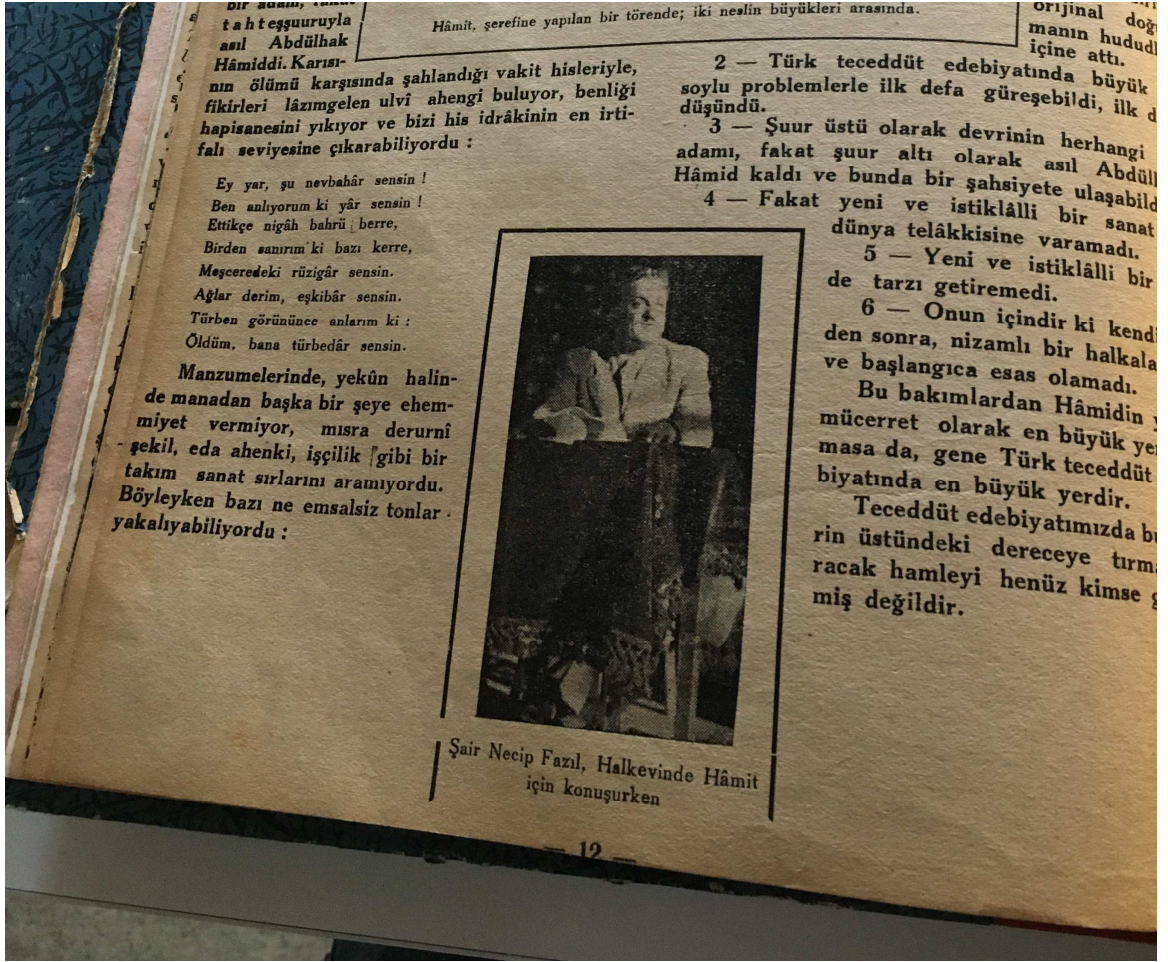 Hâmit, şerefine yapılan bir törende; iki neslin büyükleri arasında.
bir adam,
tahteşşuuruyla
asıl Abdülhak
Hâmiddi. Karısı-
nın ölümü karşısında şahlandığı vakit hisleriyle,
fikirleri lâzımgelen ulvî ahengi buluyor, benliği
hapisanesini yıkıyor ve bizi his idrâkinin en irti-
falı seviyesine çıkarabiliyordu :
Ey yar, şu nevbahâr sensin !
Ben anlıyorum ki yâr sensin !
Ettikçe nigâh bahrü berre,
Birden sanırım ki bazı kerre,
Meşceredeki rüzigâr sensin.
Ağlar derim, eşkibâr sensin.
Türben görününce anlarım ki :
Öldüm, bana türbedâr sensin.
Manzumelerinde, yekûn halin-
de manadan başka bir şeye ehem-
miyet vermiyor, mısra derunî
şekil, eda ahenki, işçilik gibi bir
takım sanat sırlarını aramıyordu.
Böyleyken bazı ne emsalsiz tonlar
yakalıyabiliyordu :
Şair Necip Fazıl, Halkevinde Hâmit
için konuşurken
orijinal
manın
içine attı.
2 — Türk teceddüt edebiyatında büyük
soylu problemlerle ilk defa güreşebildi, ilk
düşündü.
3 — Şuur üstü olarak devrinin herhangi
adamı, fakat şuur altı olarak asıl
Hâmid kaldı ve bunda bir şahsiyete
4 — Fakat yeni ve istiklâlli bir sanat
dünya telâkkisine varamadı.
5 — Yeni ve istiklâlli bir
de tarzı getiremedi.
6 — Onun içindir ki
den sonra, nizamlı bir
ve başlangıca esas olamadı.
Bu bakımlardan Hâmidin
mücerret olarak en büyük
masa da, gene Türk teceddüt
biyatında en büyük yerdir.
Teceddüt edebiyatımızda
rin üstündeki dereceye
racak hamleyi henüz kimse
miş değildir.
— 12 —